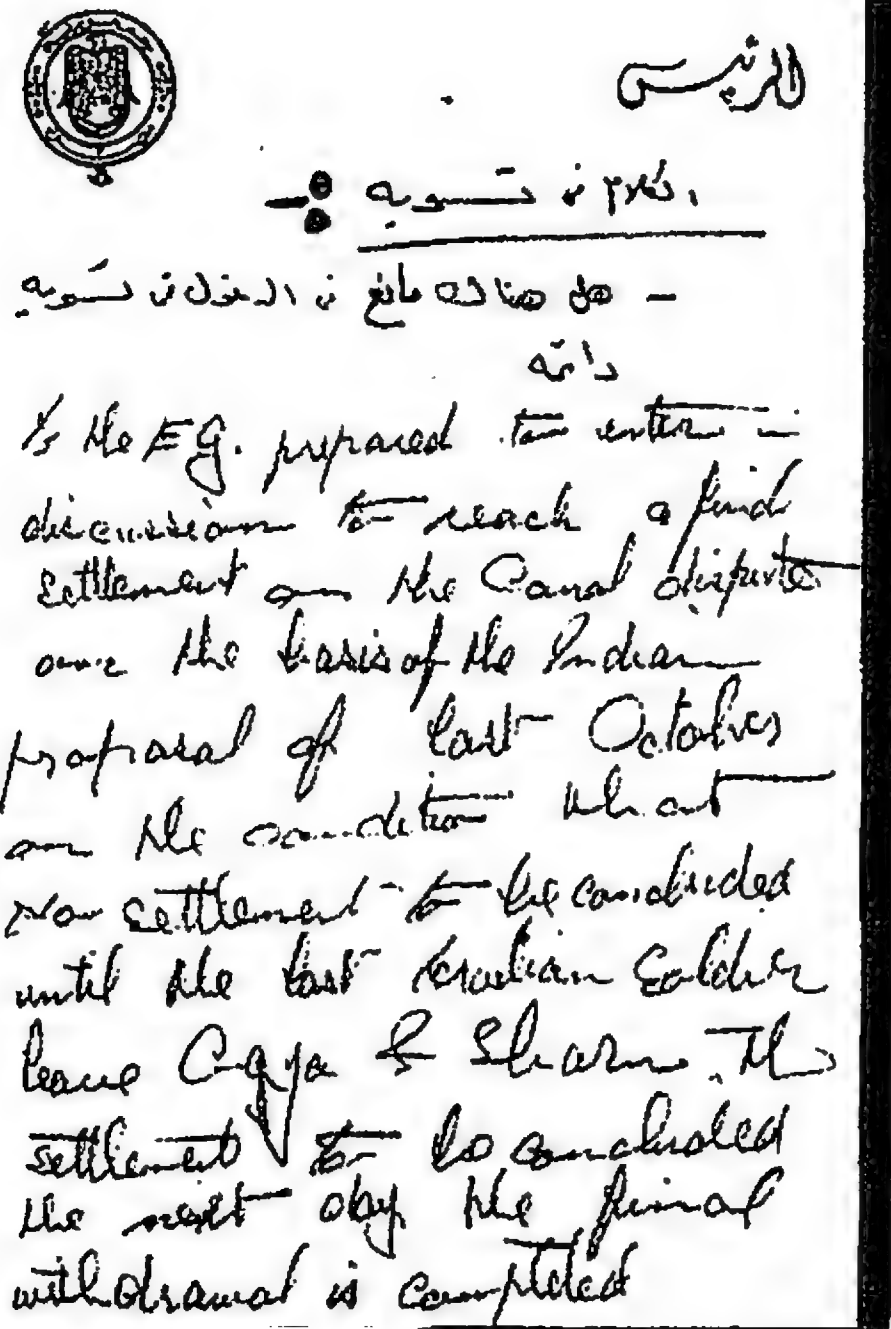 الرئيس
الكلام في تسويه :-
- هل هناك مانع في الدخول في تسويه
دائمه
Is the EG. prepared to enter in
discussion to reach a final
settlement on the Canal dispute
on the basis of the Indian
proposal of last October
on the condition that
no settlement to be concluded
until the last Israelian soldier
leave Gaza & Sharm. This
settlement to be concluded
the next day the final
withdrawal is completed